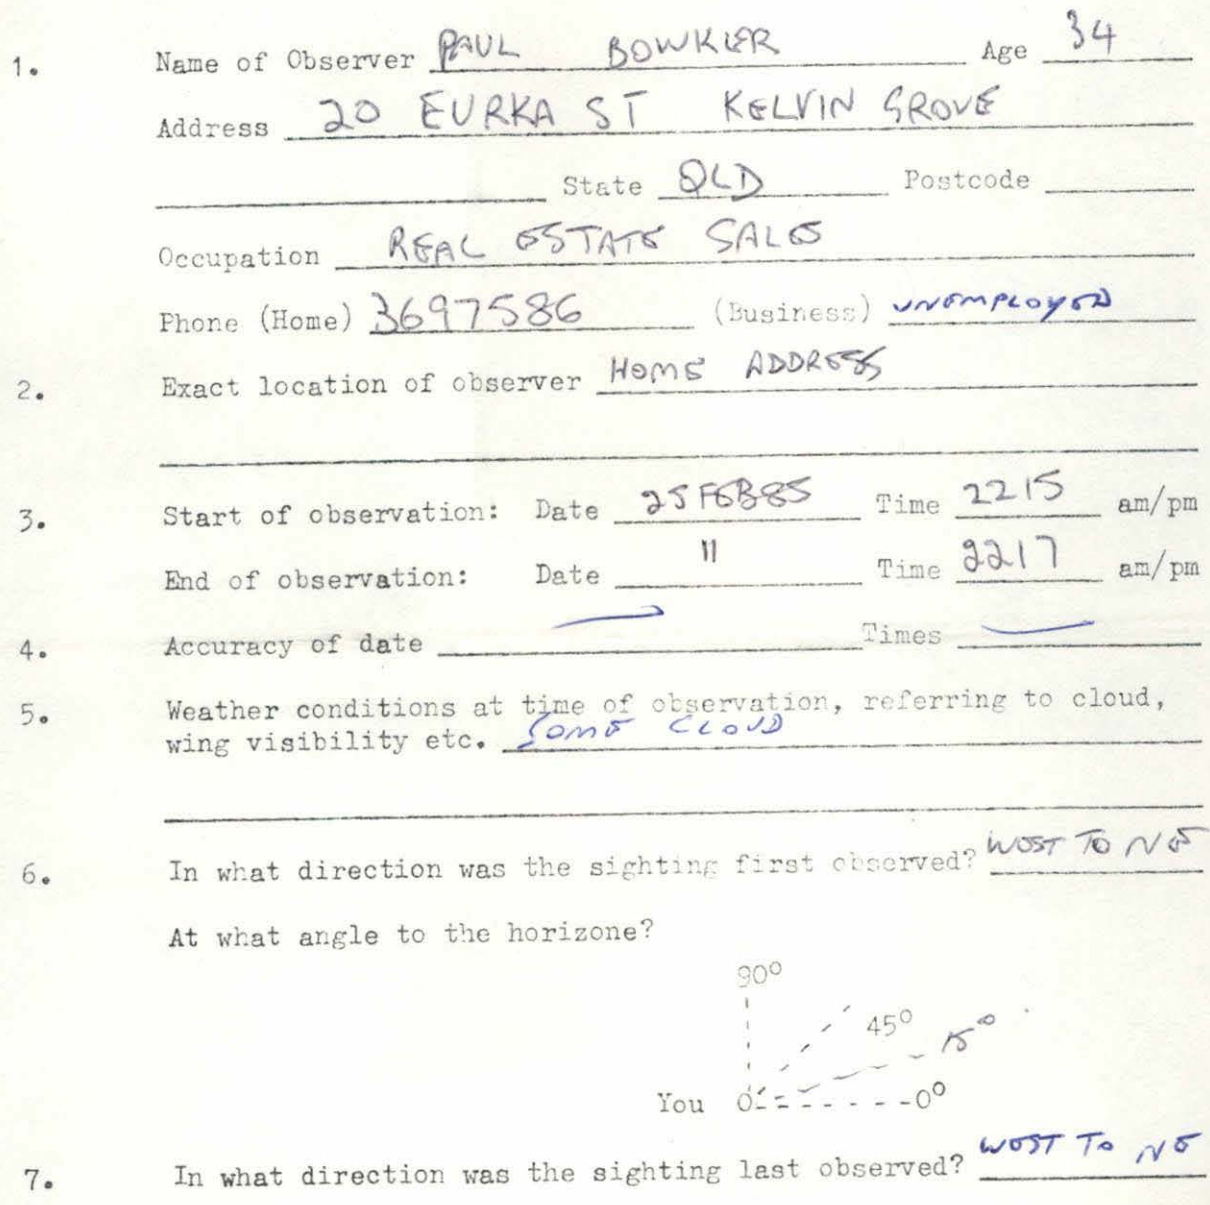 1. Name of Observer PAUL BOWKLER Age 34
Address 20 EURKA ST KELVIN GROVE
State QLD Postcode
Occupation REAL ESTATE SALES
Phone (Home) 3697586 (Business) UNEMPLOYED
2. Exact location of observer HOME ADDRESS
3. Start of observation: Date 25 FEB 85 Time 2215 am/pm
End of observation: Date " Time 2217 am/pm
4. Accuracy of date Times
5. Weather conditions at time of observation, referring to cloud,
wing visibility etc. SOME CLOUD
6. In what direction was the sighting first observed? WEST TO NE
At what angle to the horizone?
90°
45°
15°
You 0 0°
7. In what direction was the sighting last observed? WEST TO NE